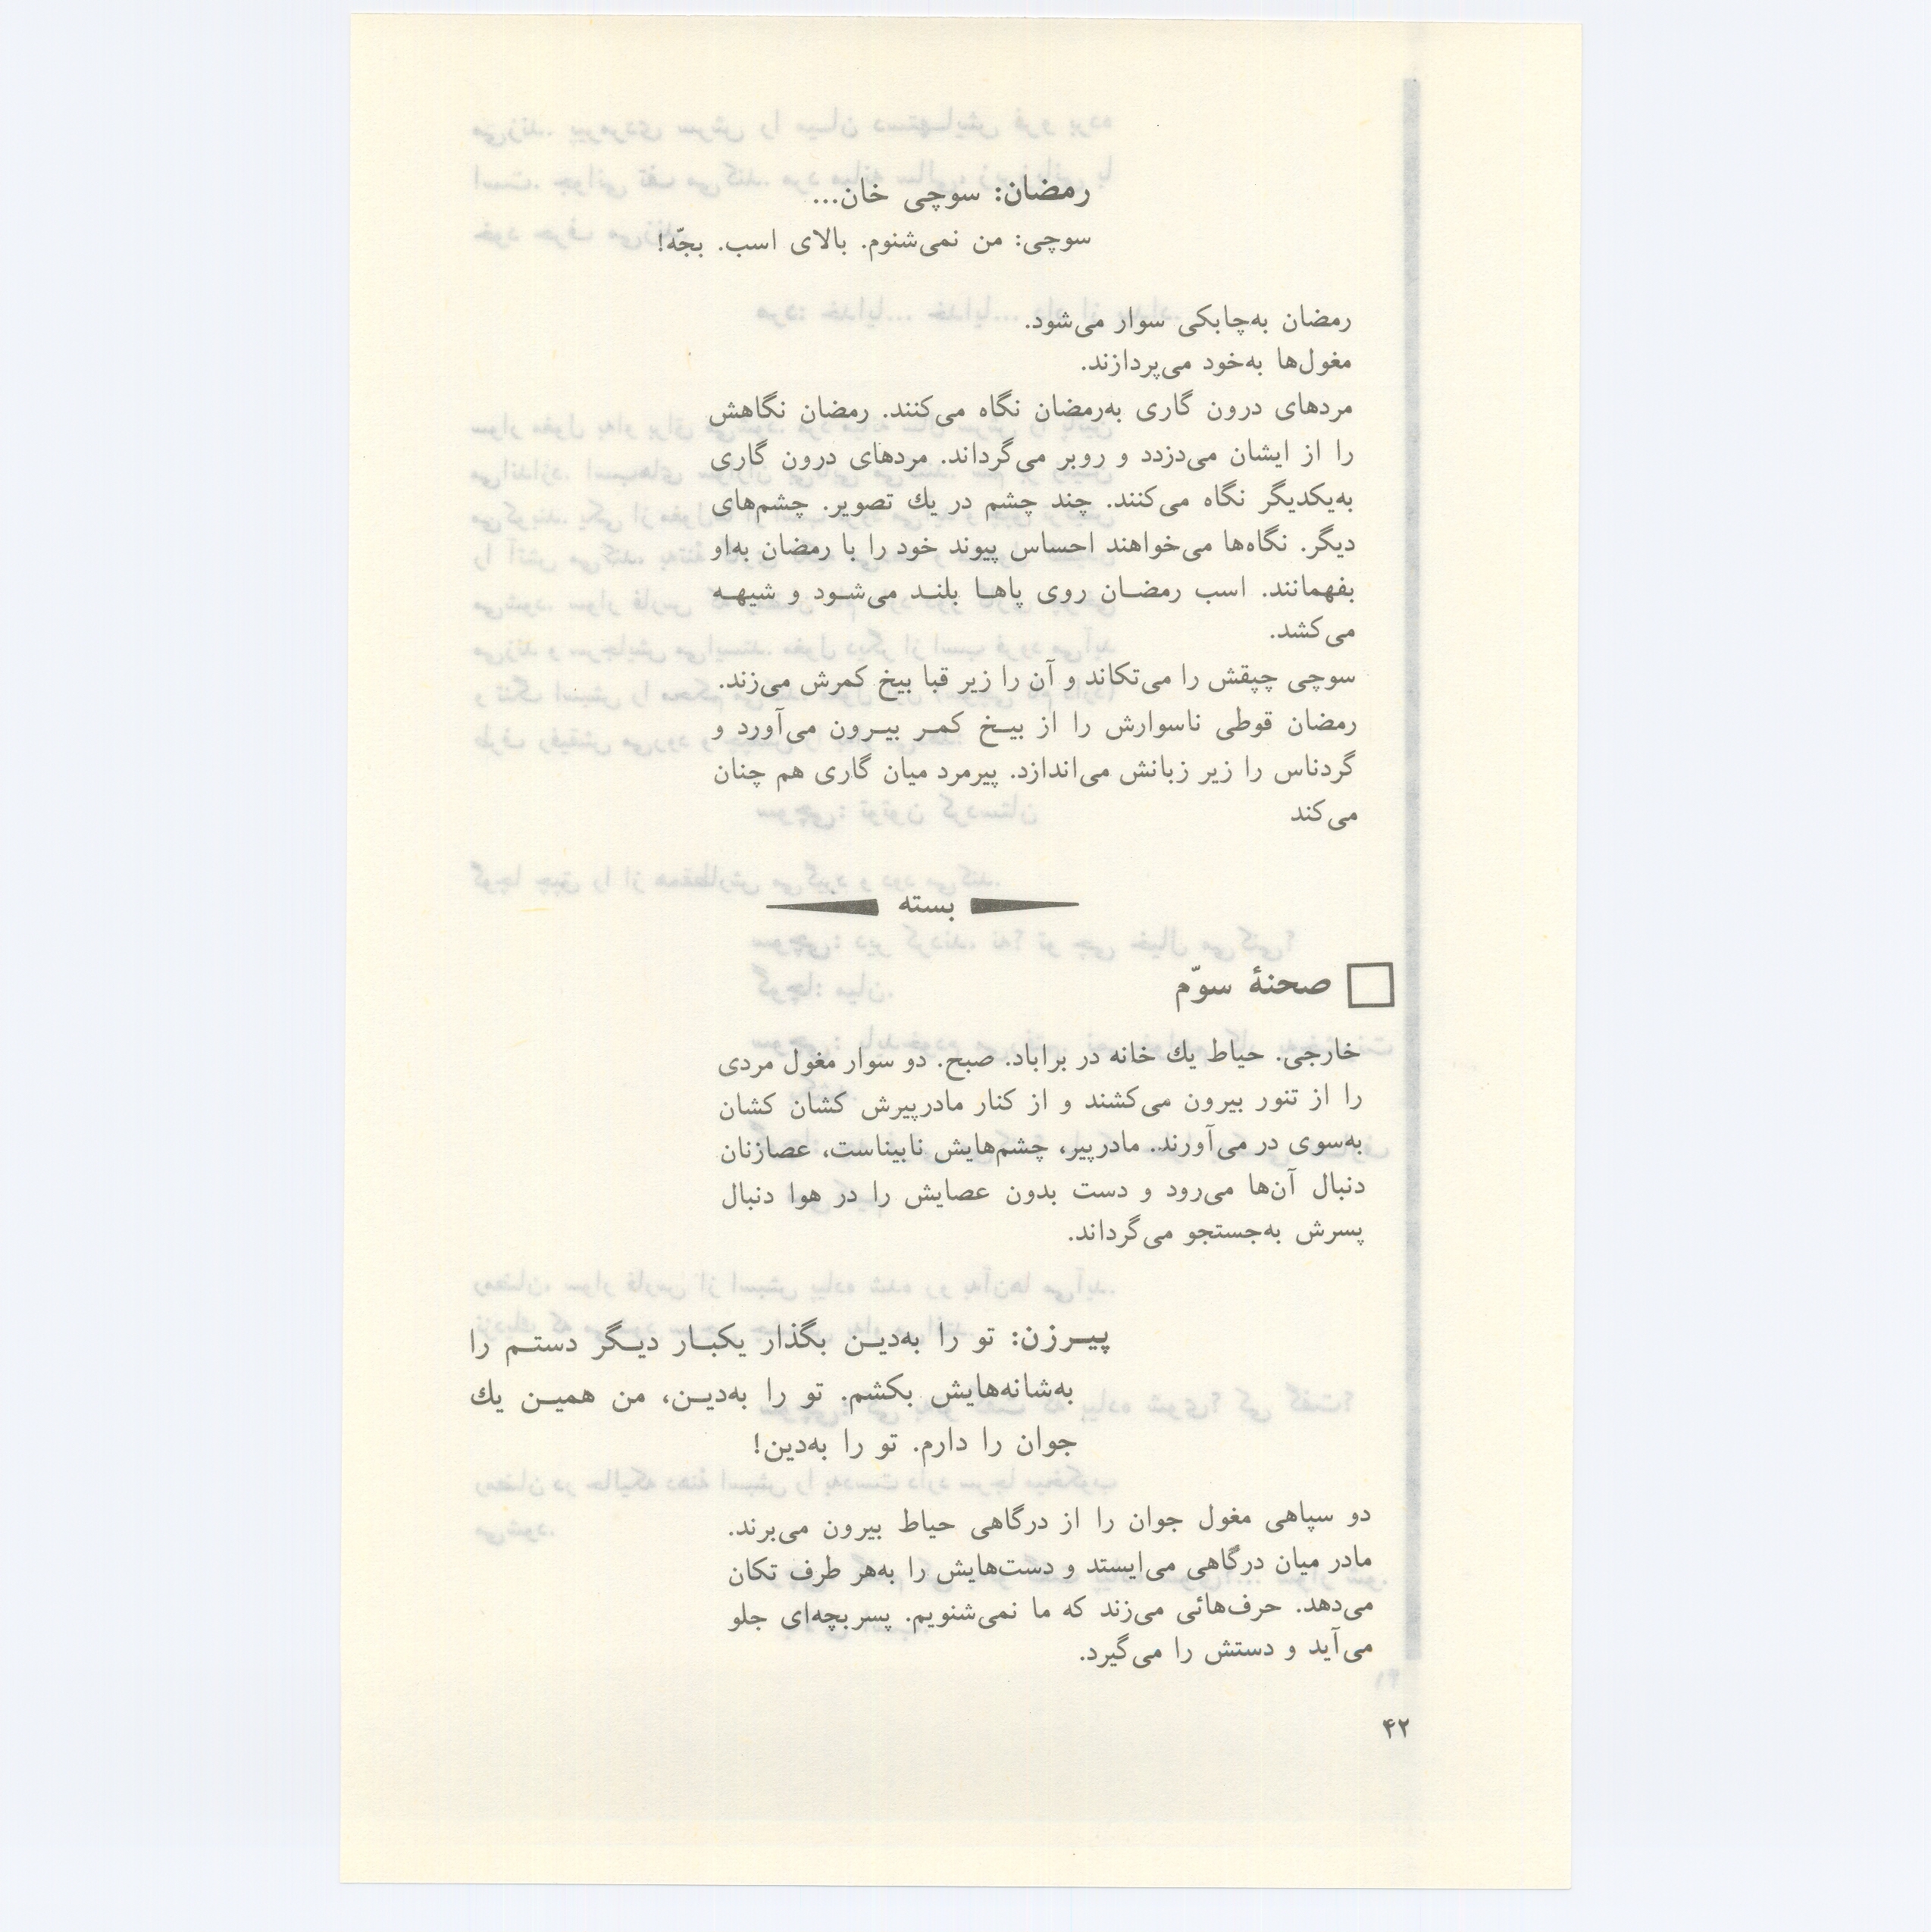 رمضان: سوچی خان...
سوچی: من نمی‌شنوم. بالای اسب. بجّه!
رمضان به‌چابکی سوار می‌شود.
مغول‌ها به‌خود می‌پردازند.
مردهای درون گاری به‌رمضان نگاه می‌کنند. رمضان نگاهش
را از ایشان می‌دزدد و روبر می‌گرداند. مردهای درون گاری
به‌یکدیگر نگاه می‌کنند. چند چشم در یك تصویر. چشم‌های
دیگر. نگاه‌ها می‌خواهند احساس پیوند خود را با رمضان به‌او
بفهمانند. اسب رمضـان روی پاهـا بلنـد می‌شـود و شیهـه
می‌کشد.
سوچی چپقش را می‌تکاند و آن را زیر قبا بیخ کمرش می‌زند.
رمضان قوطی ناسوارش را از بیـخ کمـر بیـرون می‌آورد و
گردناس را زیر زبانش می‌اندازد. پیرمرد میان گاری هم چنان
می‌کند
بسته
صحنهٔ سوّم
خارجی. حیاط یك خانه در براباد. صبح. دو سوار مغول مردی
را از تنور بیرون می‌کشند و از کنار مادرپیرش کشان کشان
به‌سوی در می‌آورند. مادرپیر، چشم‌هایش نابیناست، عصازنان
دنبال آن‌ها می‌رود و دست بدون عصایش را در هوا دنبال
پسرش به‌جستجو می‌گرداند.
پیـرزن: تو را به‌دیـن بگذار یکبـار دیـگر دستـم را
به‌شانه‌هایش بکشم. تو را به‌دیـن، من همیـن یك
جوان را دارم. تو را به‌دین!
دو سپاهی مغول جوان را از درگاهی حیاط بیرون می‌برند.
مادر میان درگاهی می‌ایستد و دست‌هایش را به‌هر طرف تکان
می‌دهد. حرف‌هائی می‌زند که ما نمی‌شنویم. پسربچه‌ای جلو
می‌آید و دستش را می‌گیرد.
۴۲